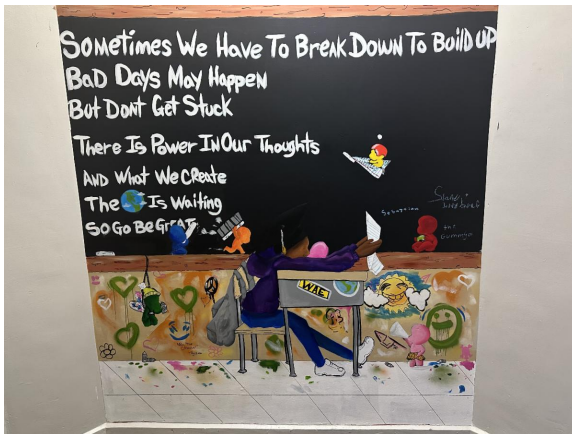 Sometimes We Have To Break Down To Build up
Bad Days May Happen
But Dont Get Stuck
There Is Power In Our Thoughts
And What We Create
The Is Waiting
So Go Be Great
Sebastian
WAE